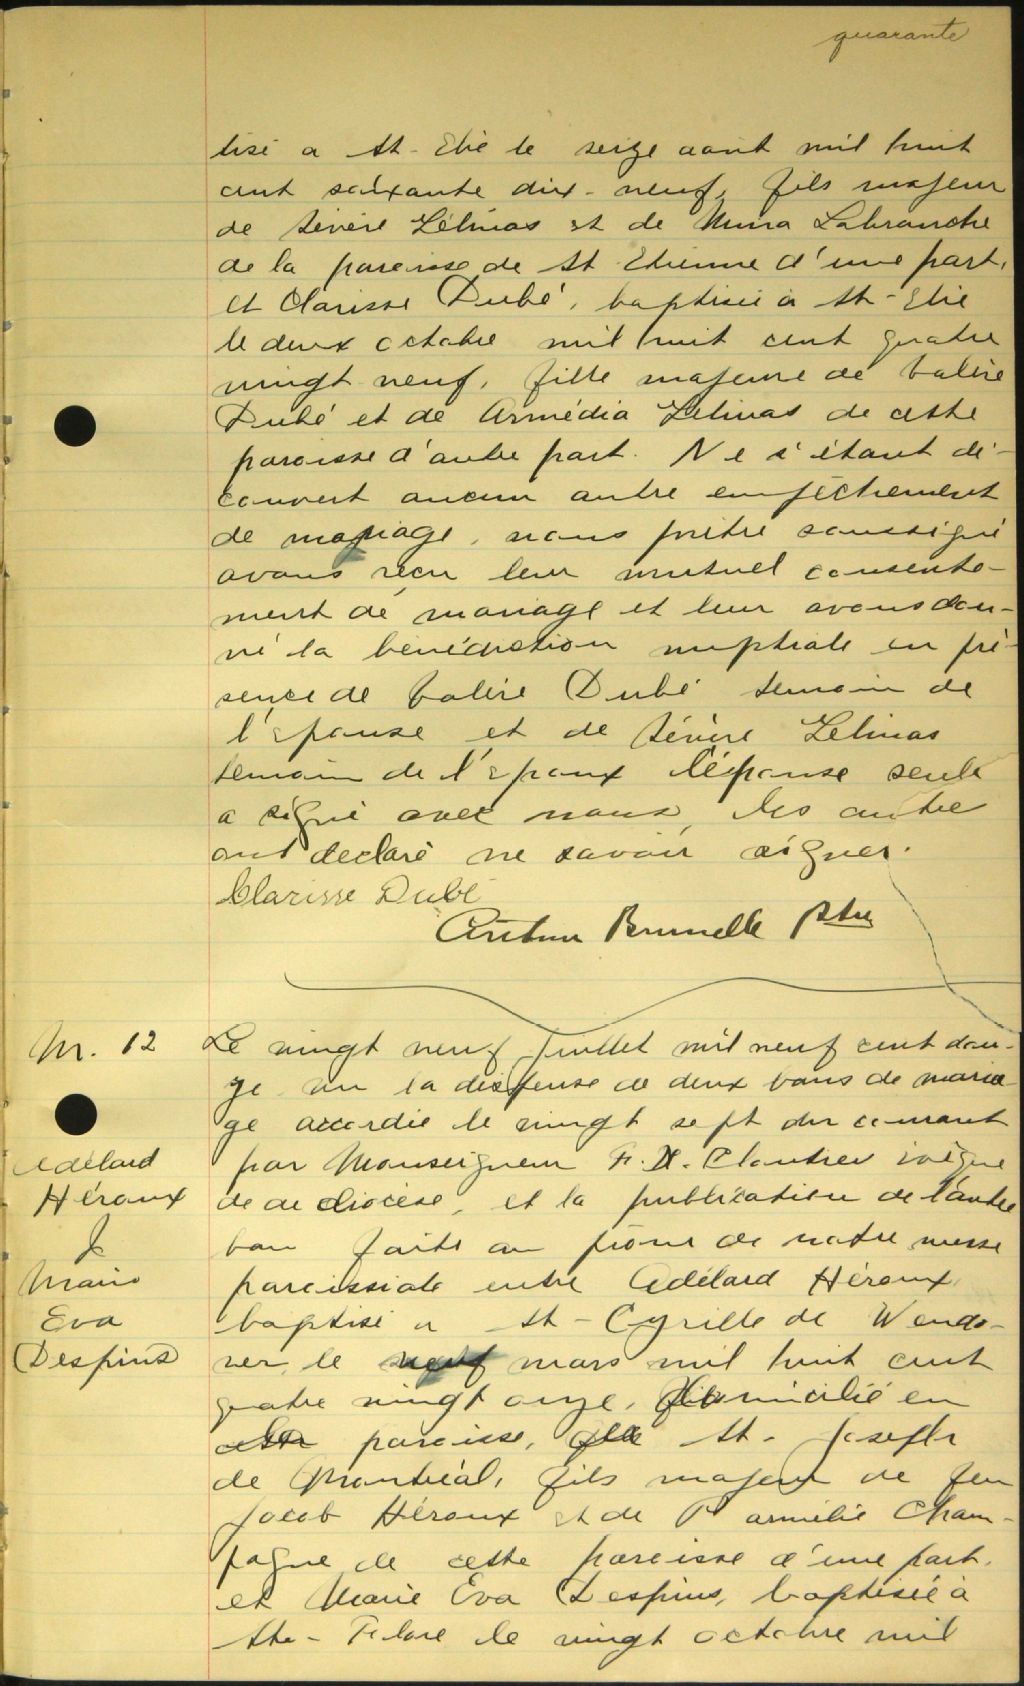 quarante
tisé a St-Elie le seize août mil huit
cent soixante dix-neuf, fils majeur
de Sévère Lélinas et de Mina Labranche
de la paroisse de St Etienne d'une part,
et Clarisse Dubé, baptisée à St-Elie
le deux octobre mil huit cent quatre
vingt neuf, fille majeure de Valère
Dubé et de Armédia Lelinas de cette
paroisse d'autre part. Ne s'étant dé-
couvert aucun autre empêchement
de mariage, nous prêtre soussigné
avons reçu leur mutuel consente-
ment de mariage et leur avons don-
né la bénédiction nuptiale en pré-
sence de Valère Dubé temoin de
l'épouse et de Sévère Lelinas
temoin de l'epoux L'épouse seule
a signé avec nous, les autre
ont declaré ne savoir signer.
Clarisse Dubé
Arthur Brunelle Ptre
M. 12
Adélard
Héroux
&
Marie
Eva
Despins
Le vingt neuf Juillet mil neuf cent dou-
ze vu la dispense de deux bans de maria-
ge accordée le vingt sept du courant
par Monseigneur F. X. Cloutier évêque
de ce diocèse, et la publication de l'autre
ban faite au prône de notre messe
paroissiale entre Adélard Héroux,
baptisé a St-Cyrille de Wendo-
ver, le neuf mars mil huit cent
quatre vingt onze, domicilié en
cette paroisse, St. Joseph
de Montréal, fils majeur de feu
Jacob Héroux et de Parmélie Cham-
pagne de cette paroisse d'une part.
et Marie Eva Despins, baptisée à
Ste-Flore le vingt octobre mil